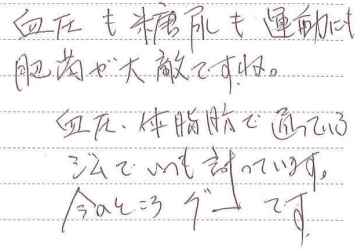 血圧も糖尿も運動にも
肥満が大敵ですね。
血圧、体脂肪で通っている
ジムでいつも計っています。
今のところグーです